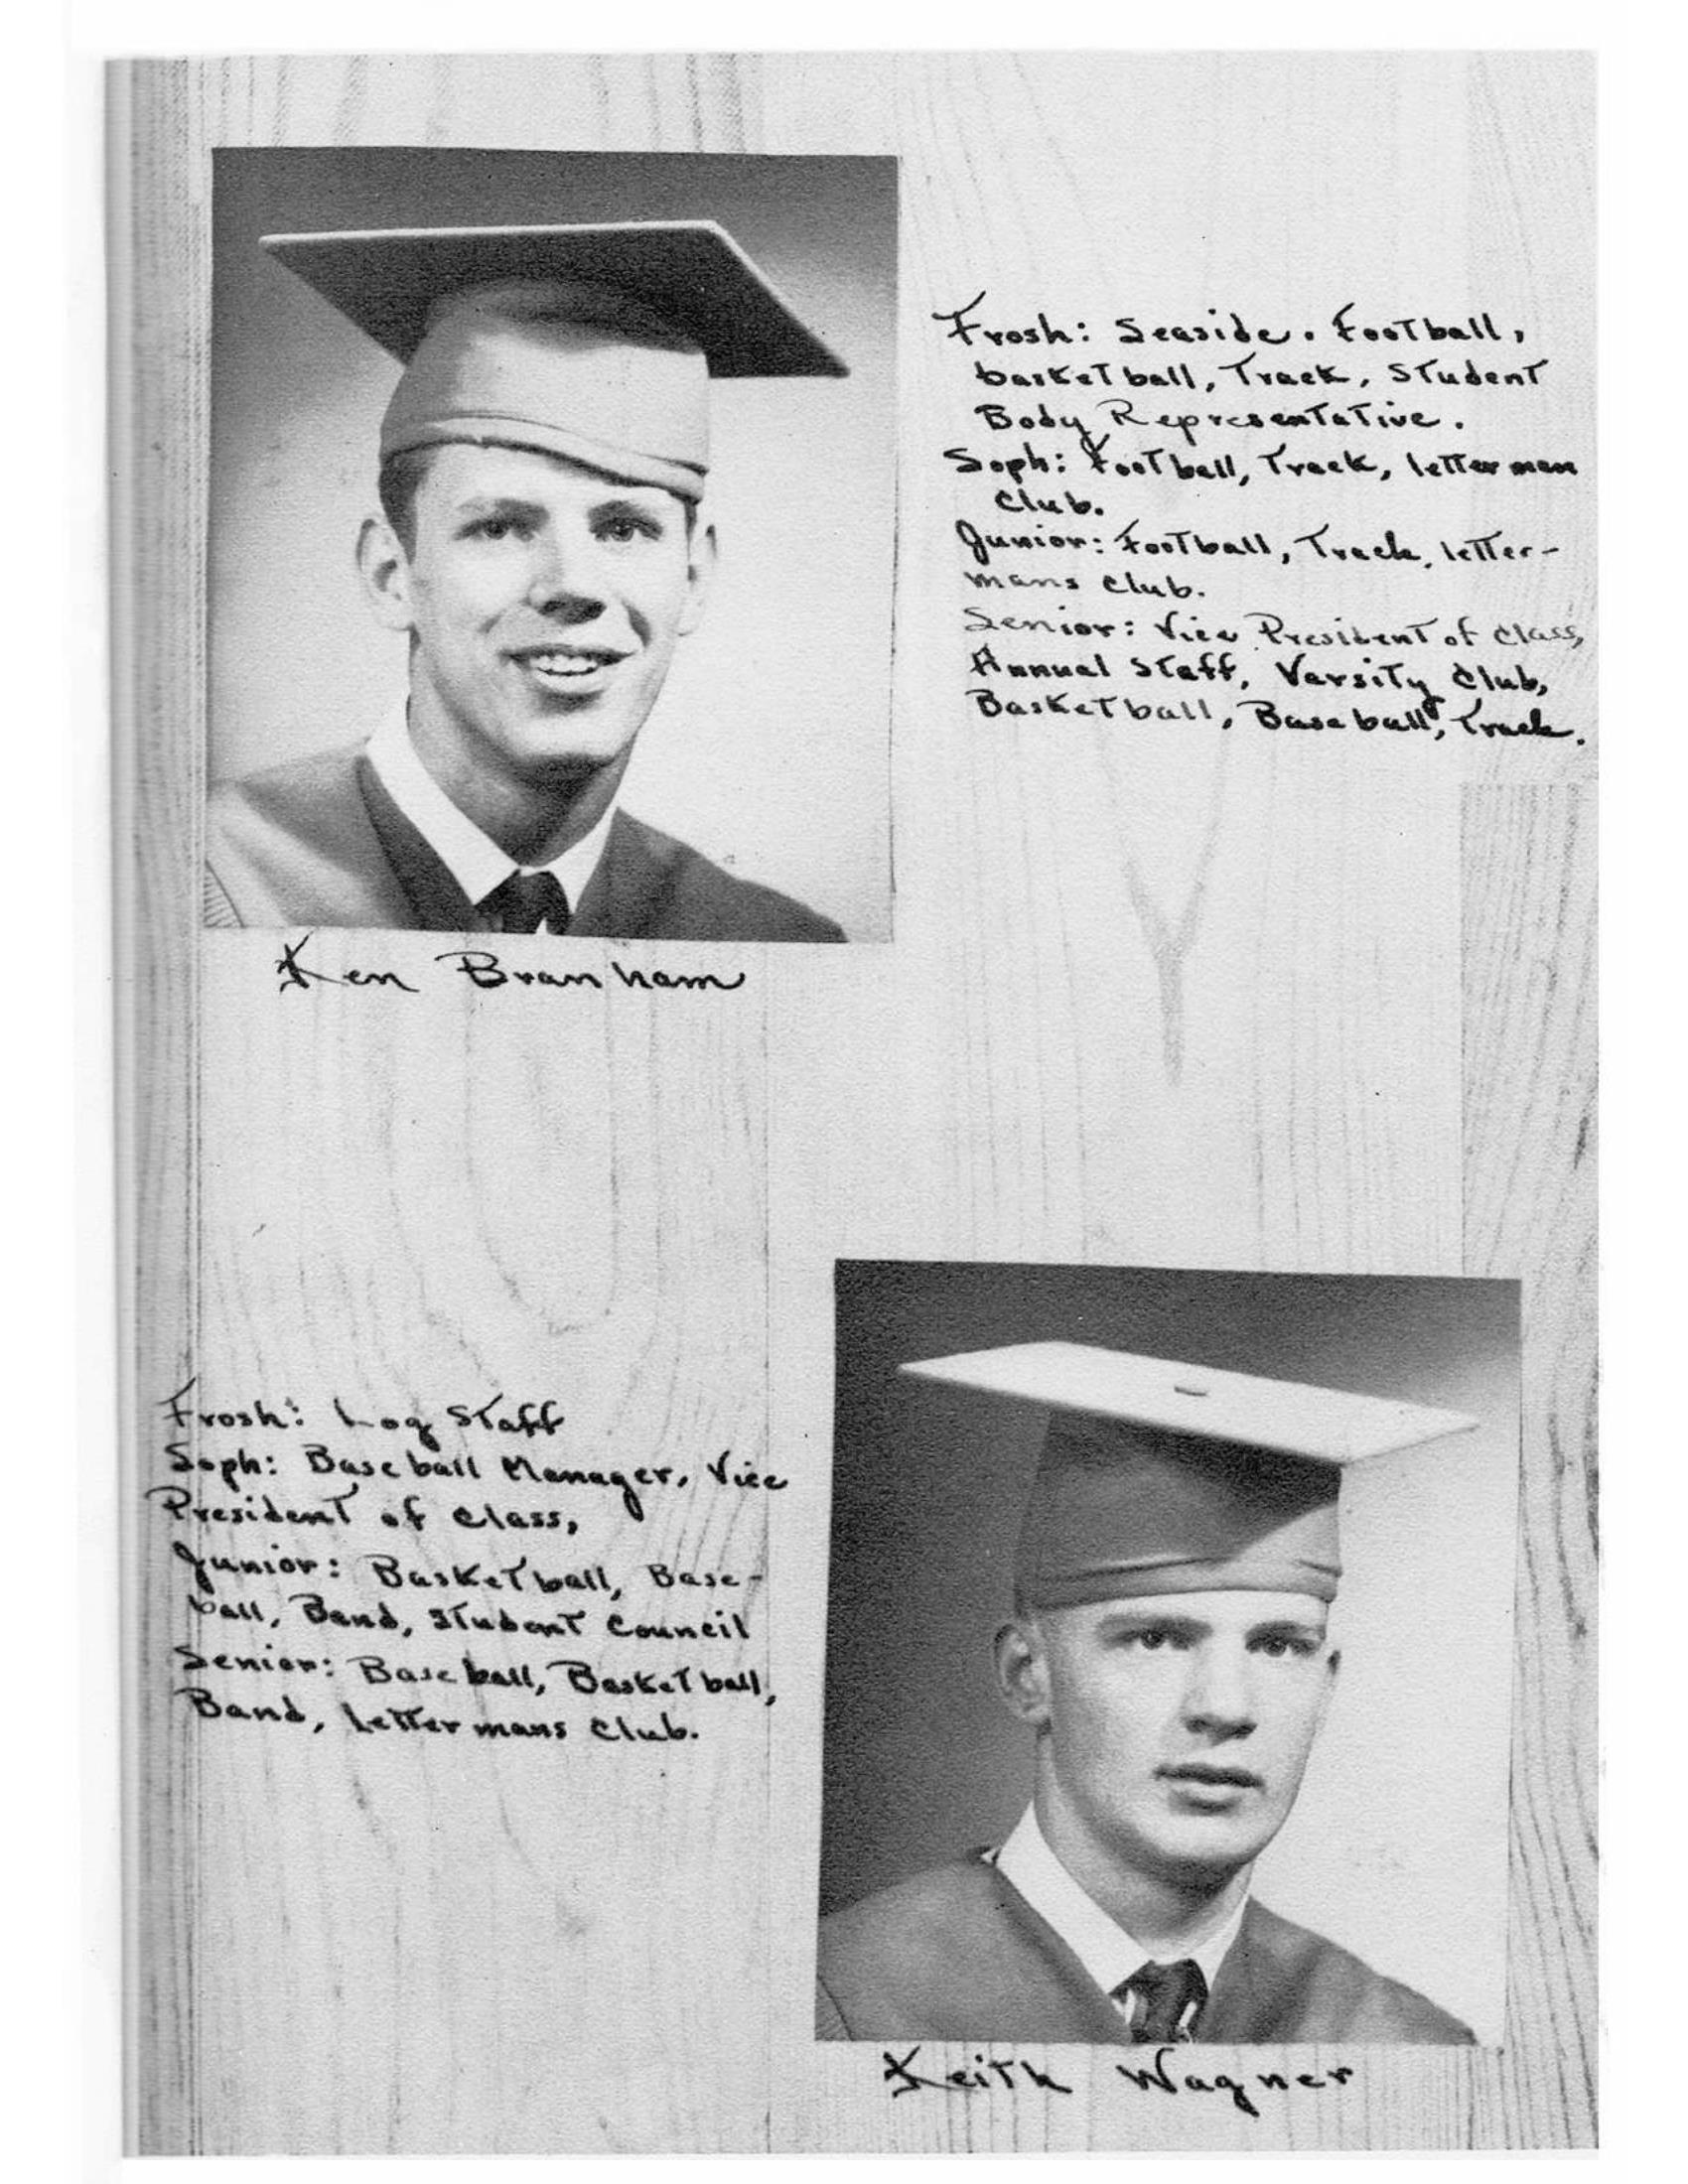 Frosh: Seaside. Football,
basketball, Track, Student
Body Representative.
Soph: Football, Track, letterman
Club.
Junior: Football, Track, letter-
mans Club.
Senior: Vice President of Class,
Annual Staff, Varsity Club,
Basketball, Baseball, Track.
Ken Branham
Frosh: Log Staff
Soph: Baseball Manager, Vice
President of Class,
Junior: Basketball, Base-
ball, Band, Student Council
Senior: Baseball, Basketball,
Band, Lettermans Club.
Keith Wagner